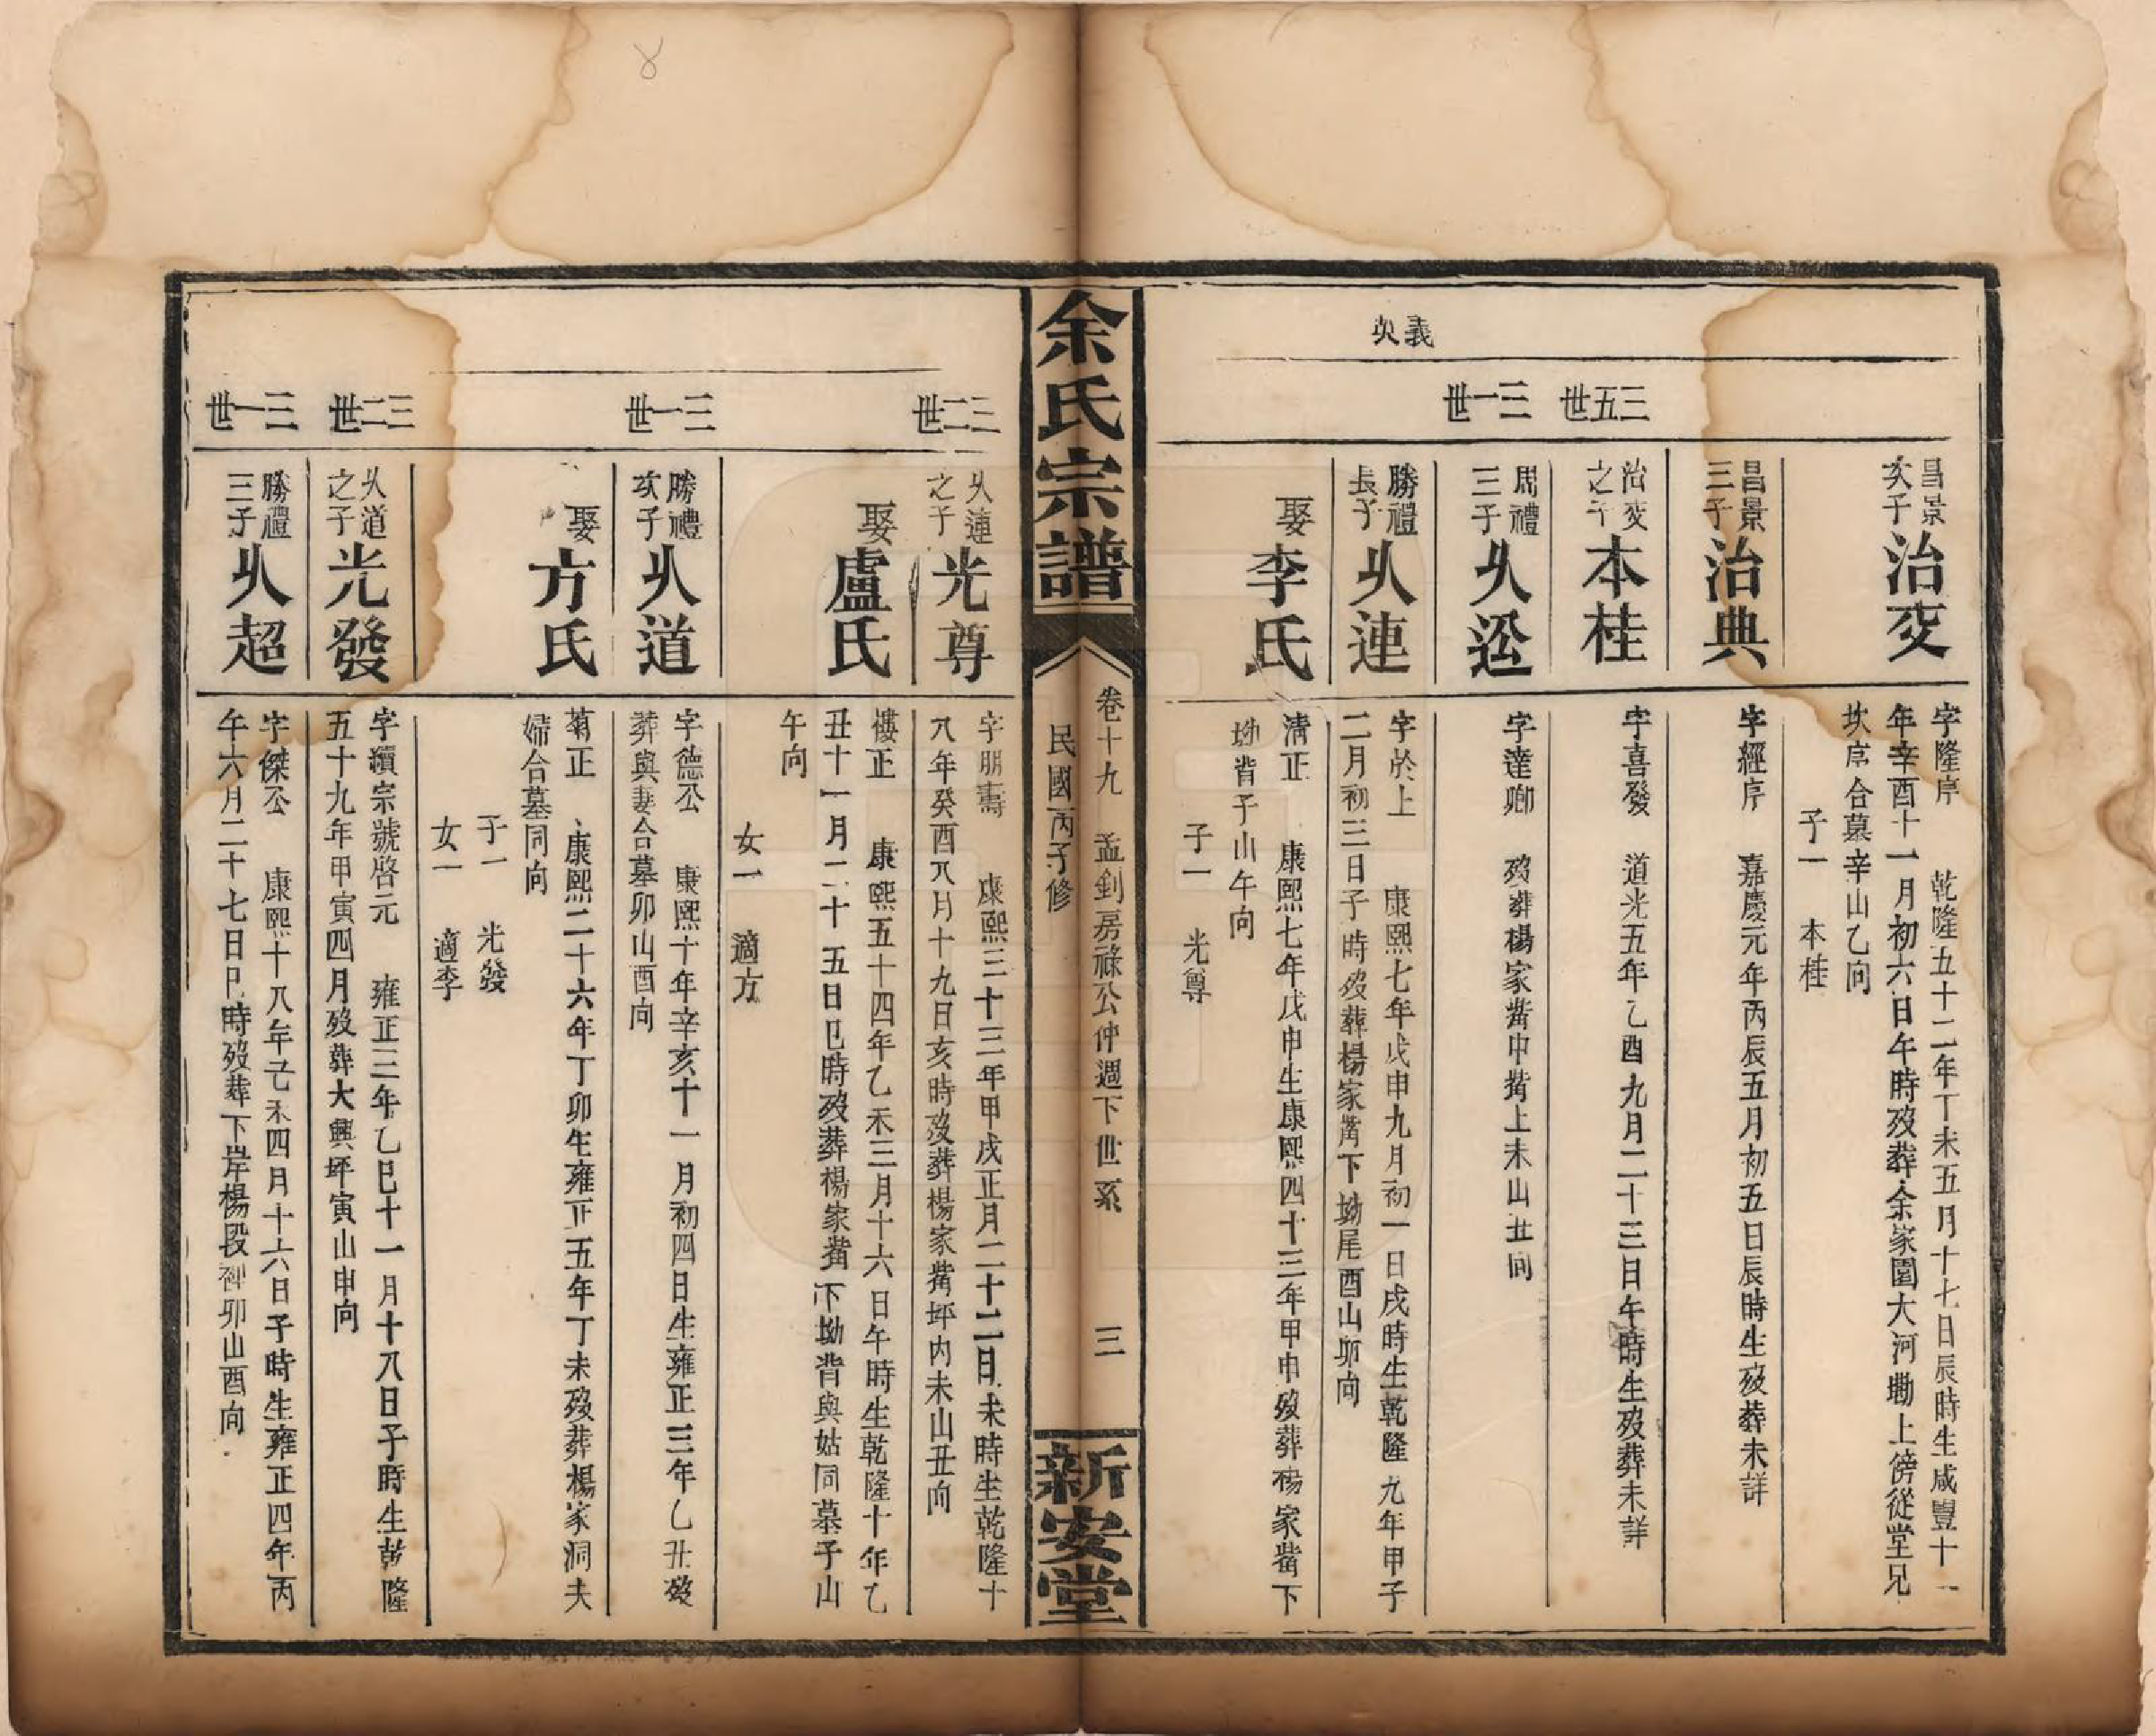 次義
三五世
三一世
昌景
次子
治変
字隆序 乾隆五十二年丁未五月十七日辰時生咸豐十一
年辛酉十一月初六日午時歿葬余家園大河墈上傍從堂兄
次房合墓辛山乙向
子一 本桂
昌景
三子
治典
字經序 嘉慶元年丙辰五月初五日辰時生歿葬未詳
治変
之子
本桂
字喜發 道光五年乙酉九月二十三日午時生歿葬未詳
周禮
三子
从
字達卿 歿葬楊家嘴中嘴上未山丑向
勝禮
長子
从連
字於上 康熙七年戊申九月初一日戌時生乾隆九年甲子
二月初三日子時歿葬楊家嘴下坳尾酉山卯向
娶
李氏
清正 康熙七年戊申生康熙四十三年甲申歿葬楊家嘴下
坳背子山午向
子一 光尊
余氏宗譜
卷十九 孟釗房祿公仲週下世系 三
民國丙子修
新安堂
三二世
三一世
三二世
三一世
从連
之子
光尊
字朋壽 康熙三十三年甲戌正月二十二日未時生乾隆十
八年癸酉八月十九日亥時歿葬楊家嘴坪内未山丑向
娶
盧氏
樓正 康熙五十四年乙未三月十六日午時生乾隆十年乙
丑十一月二十五日巳時歿葬楊家嘴下坳背與姑同墓子山
午向
女一 適方
勝禮
次子
从道
字德公 康熙十年辛亥十一月初四日生雍正三年乙丑歿
葬與妻合墓卯山酉向
娶
方氏
菊正 康熙二十六年丁卯生雍正五年丁未歿葬楊家洞夫
婦合墓同向
子一 光發
女一 適李
从道
之子
光發
字續宗號啓元 雍正三年乙巳十一月十八日子時生乾隆
五十九年甲寅四月歿葬大興坪寅山申向
勝禮
三子
从超
字傑公 康熙十八年己未四月十六日子時生雍正四年丙
午六月二十七日巳時歿葬下岸楊段卯山酉向